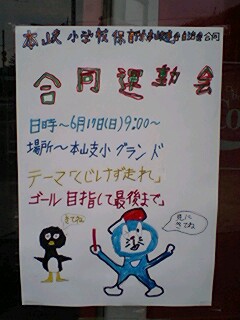 本山支小学校保育
合同
合同運動会
日時～6月17日(日)9:00～
場所～本山支小グランド
テーマ「くじけず走れ」
ゴール目指して最後まで」
きてね
見に
きてね